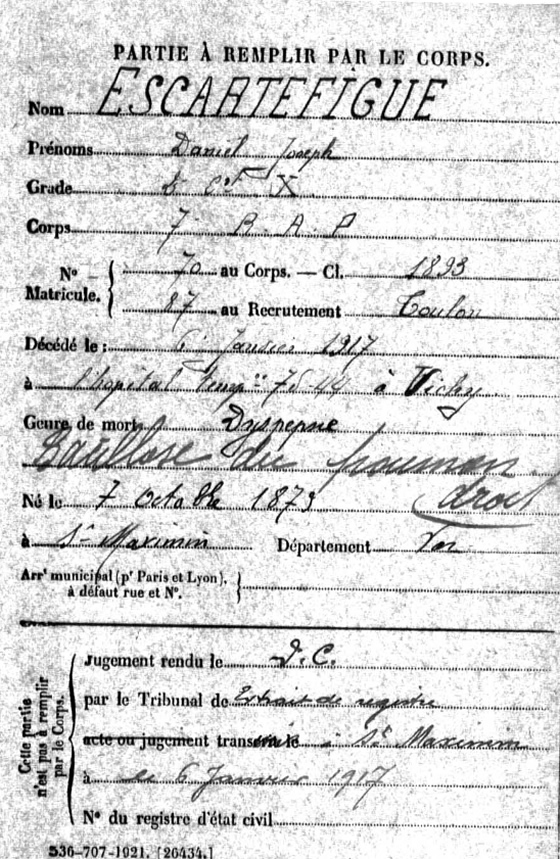 PARTIE À REMPLIR PAR LE CORPS.
Nom ESCARTEFIGUE
Prénoms Daniel Joseph
Grade 2e Ct X
Corps 7 R. A. P
No Matricule. 70 au Corps. — Cl. 1893
87 au Recrutement Toulon
Décédé le : 6 Janvier 1917
à l'hopital temp re 75-44 à Vichy.
Genre de mort Dyspepsie
Bacillose du poumon
droit
Né le 7 Octobre 1873
à St Maximin Département Var
Arrt municipal (pr Paris et Lyon),
à défaut rue et No.
Cette partie
n'est pas à remplir
par le Corps.
Jugement rendu le D.C.
par le Tribunal de Extrait de registre
acte ou jugement transcrit le à St Maximin
à le 6 Janvier 1917
No du registre d'état civil
536-707-1921. [26434.]